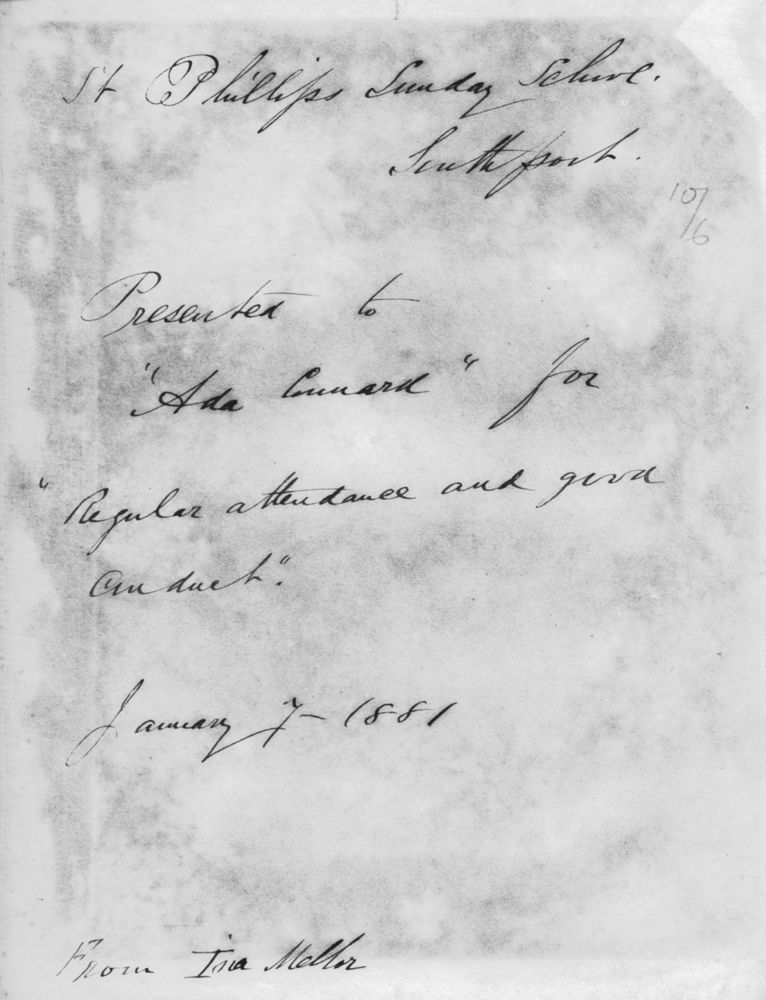 St Phillips Sunday School.
Southport.
10/6
Presented to
"Ada Connard" for
"Regular attendance and good
conduct".
January 7 - 1881
From Ina Mellor